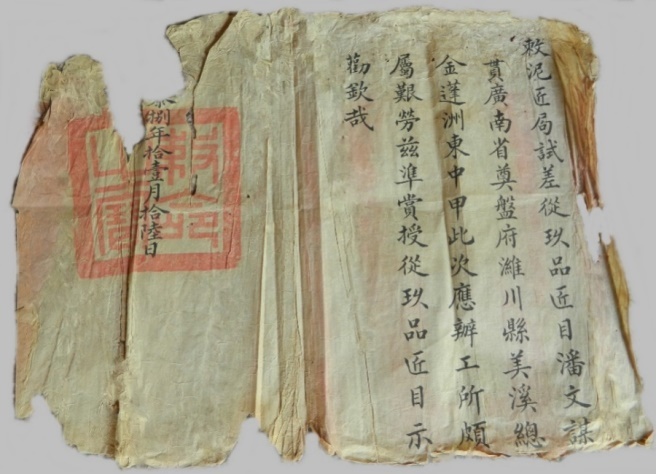 敕泥匠局試差從玖品匠目潘文謀
貫廣南省奠盤府濰川縣美溪總
金蓬洲東中甲此次應辦工所頗
屬艱勞茲準賞授從玖品匠目示
勸欽哉
捌年拾壹月拾陸日